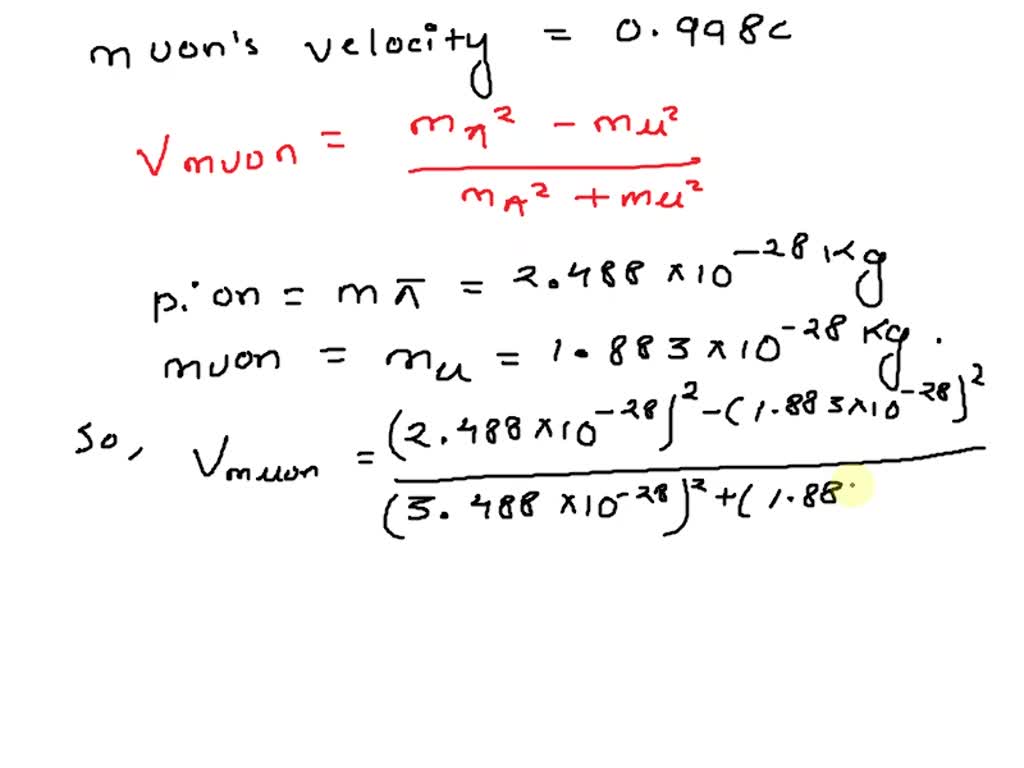 muon's velocity = 0.998c
Vmuon = mπ² - mμ² / mπ² + mμ²
pion = mπ = 2.488 × 10⁻²⁸ Kg
muon = mμ = 1.883 × 10⁻²⁸ Kg.
So, Vmuon = (2.488 × 10⁻²⁸)² - (1.883 × 10⁻²⁸)² / (3.488 × 10⁻²⁸)² + (1.88